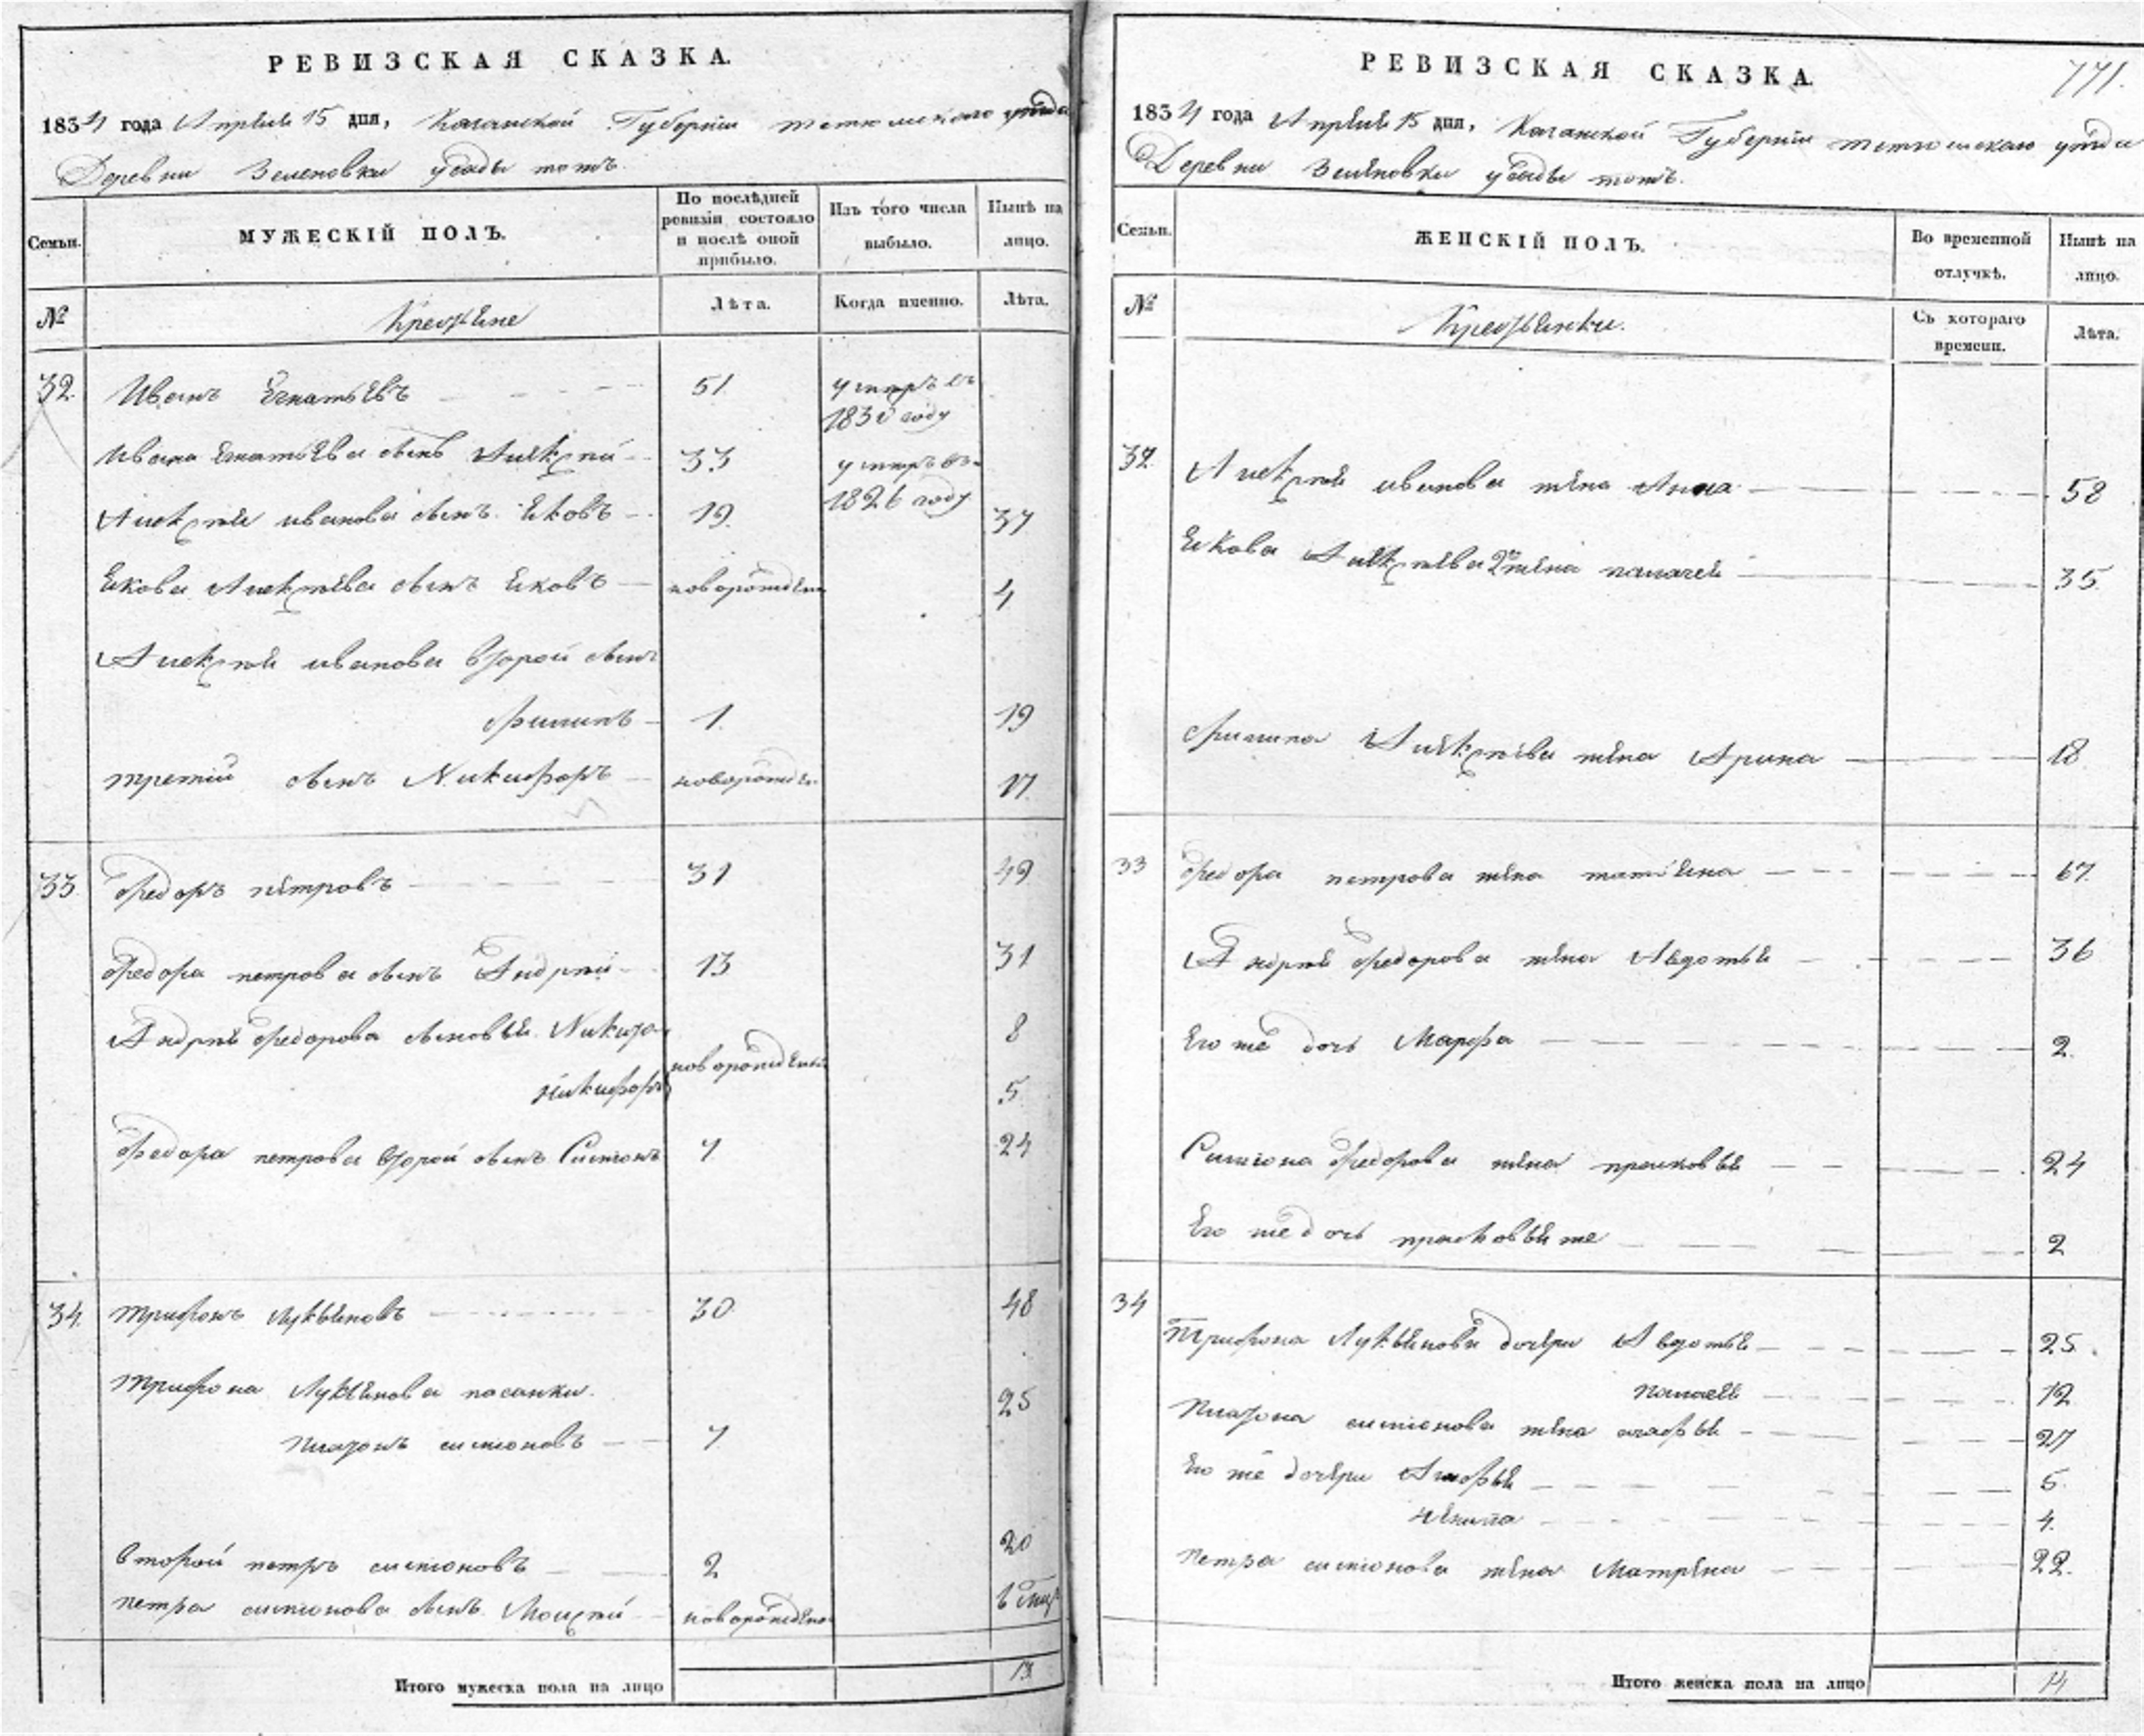 РЕВИЗСКАЯ СКАЗКА.
1834 года Апреля 15 дня, Казанской Губернiи тетюшскаго уѣзда
Деревни Зеленовки
МУЖЕСКIЙ ПОЛЪ.
Семьи.
По послѣдней
ревизiи состояло
и послѣ оной
прибыло.
Изъ того числа
выбыло.
Нынѣ на
лицо.
№
Крестьяне
Лѣта.
Когда именно.
Лѣта.
32. Иванъ Егнатьевъ 51. умеръ въ
1830 году
Ивана Егнатьева сынъ Алексѣй 33 умеръ въ
1826 году
Алексѣя иванова сынъ Яковъ 19. 37
Якова Алексѣева сынъ Яковъ новорожден 4
Алексѣя иванова второй сынъ
филипъ 1. 19
третiй сынъ Никифоръ новорожден. 17
33. Федоръ петровъ 31 49
Федора петрова сынъ Андрѣй 13 31
Андрѣя Федорова сыновья Никита 8
Никифоръ новорожденыи 5
Федора петрова второй сынъ Симионъ 7 24
34. трифонъ Лукьяновъ 30 48
трифона Лукьянова пасынки 25
платонъ симионовъ 7
второй петръ симионовъ 2 20
петра симионова сынъ Моисѣй новорожден 6
Итого мужеска пола на лицо 13
РЕВИЗСКАЯ СКАЗКА. 771.
1834 года Апреля 15 дня, Казанской Губернiи тетюшскаго уѣзда
Деревни Зеленовки
Семьи.
ЖЕНСКIЙ ПОЛЪ.
Во временной
отлучкѣ.
Нынѣ на
лицо.
№
Крестьянки.
Съ котораго
времени.
Лѣта.
32. Алексѣя иванова жена Анна 58
Якова Алексѣева 2я жена палагея 35
филипа Алексѣева жена Арина 18
33 федора петрова жена татьяна 67.
Андрѣя федорова жена Авдотья 36
Его же дочь Марфа 2.
Симиона федорова жена прасковья 24
Его же дочь прасковья же 2
34 Трифона Лукьянова дочери Авдотья 25.
палагея 12
платона симионова жена агафья 27
Его же дочери 5.
4.
петра симионова жена Матрена 22.
Итого женска пола на лицо 14